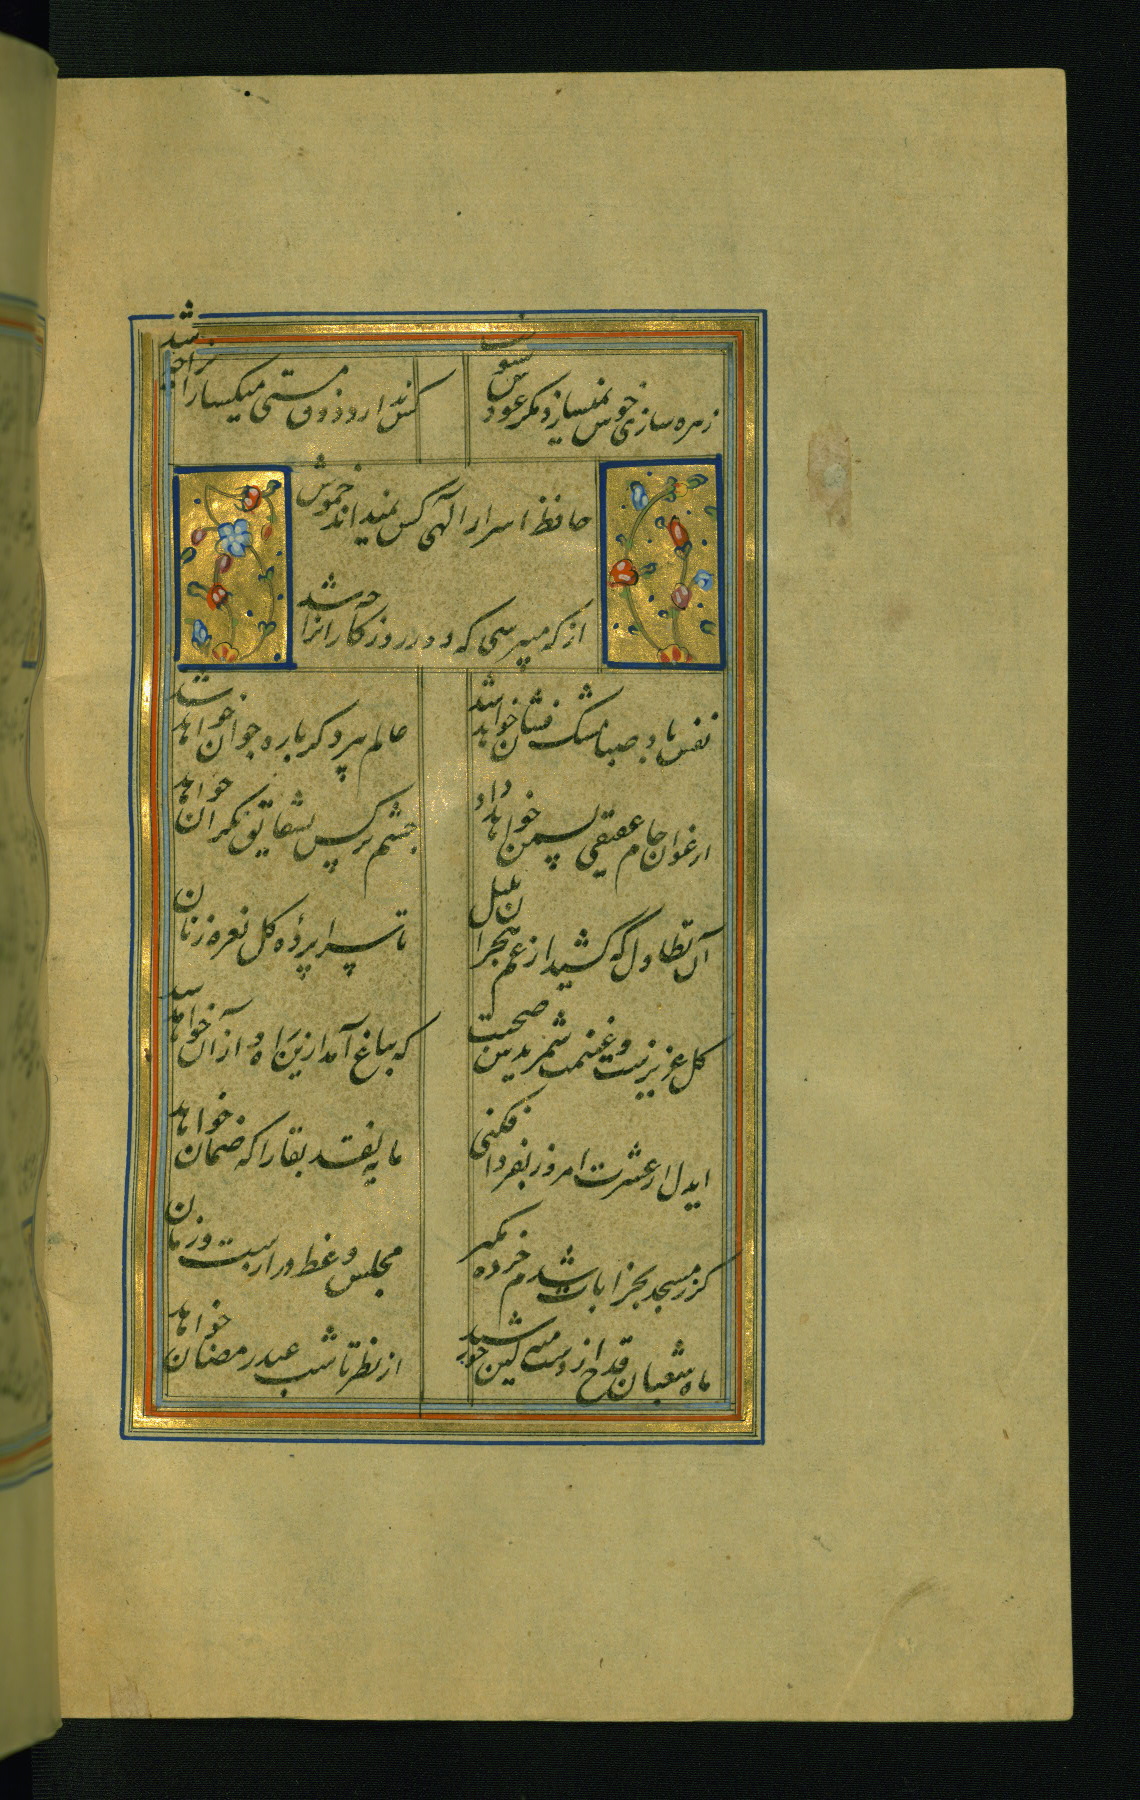 زهره سازی خوش نمیسازد مکر عودش بسوخت
کس ندارد ذوق مستی میکسارانرا چه شد
حافظ اسرار الهی کس نمیداند خموش
از که میپرسی که دور روزکارانرا چه شد
نفس باد صبا مشک فشان خواهد شد
عالم پیر دکر باره جوان خواهد شد
ارغوان جام عقیقی بسمن خواهد داد
چشم نرکس بشقایق نکران خواهد
آن تطاول که کشید از غم هجران بلبل
تا سراپردهٔ کل نعره زنان
کل عزیزیست غنیمت شمریدش صحبت
که بباغ آمد ازین راه و از آن خواهد شد
ایدل ار عشرت امروز بفردا فکنی
مایه نقد بقا را که ضمان خواهد
کر ز مسجد بخرابات شدم خرده مکیر
مجلس وعظ درازست و زمان
ماه شعبان قدح از دست منه کین خورشید
از نظر تا شب عید رمضان خواهد